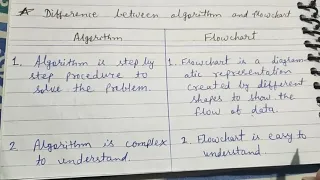 * Difference between algorithm and flowchart
Algorithm
1. Algorithm is step by
step procedure to
solve the problem.
2. Algorithm is complex
to understand.
Flowchart
1. Flowchart is a diagramm-
atic representation
created by different
shapes to show the
flow of data.
2. Flowchart is easy to
understand.